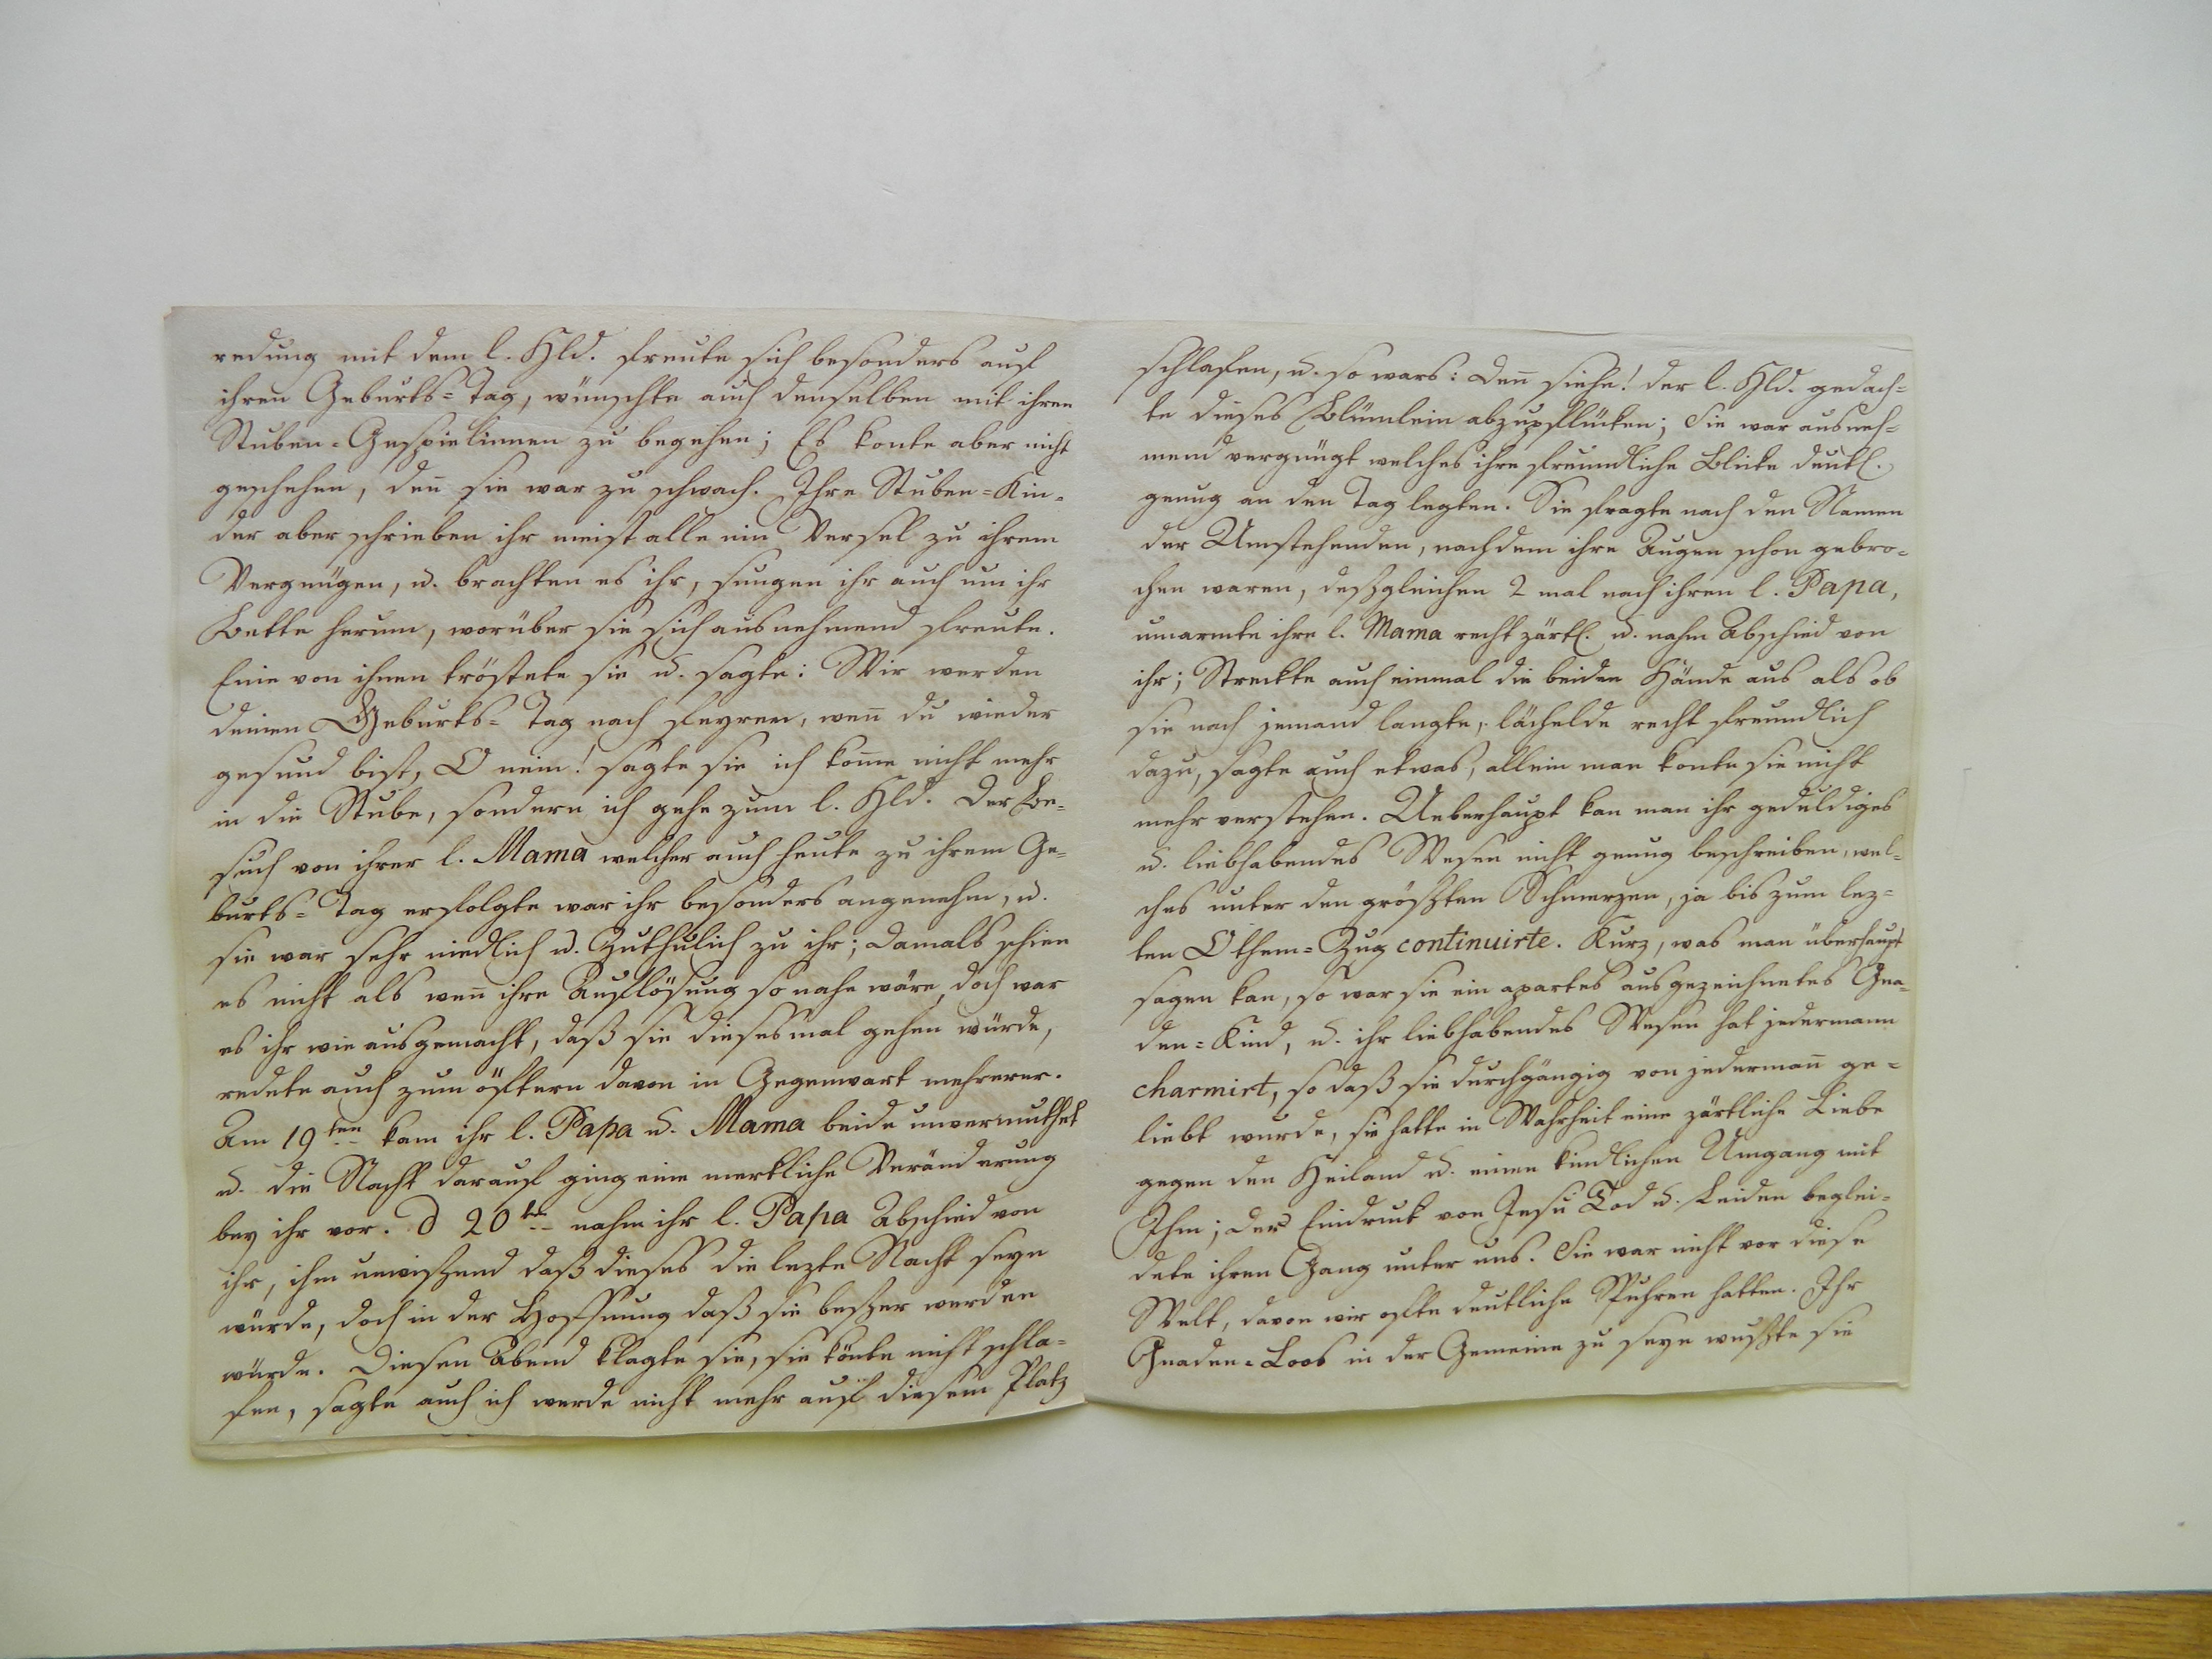 redung mit dem l. Hld. freute sich besonders auf
ihren Geburts=Tag, wünschte auch denselben mit ihren
Stuben=Gespielinnen zu begehen; Es konte aber nicht
geschehen, den̄ sie war zu schwach. Ihre Stuben=Kin=
der aber schrieben ihr meist alle ein Versel zu ihrem
Vergnügen, u. brachten es ihr, sungen ihr auch um ihr
Bette herum, worüber sie sich ausnehmend freute.
Eine von ihnen tröstete sie u. sagte: Wir werden
deinen Geburts=Tag nach feyren, wen̄ du wieder
gesund bist, O nein! sagte sie ich kom̄e nicht mehr
in die Stube, sondern ich gehe zum l. Hld. Der Be=
such von ihrer l. Mama welcher auch heute zu ihrem Ge=
burts=Tag erfolgte war ihr besonders angenehm, u.
sie war sehr niedlich u. Zuthulich zu ihr; damals schien
es nicht als wen̄ ihre Auflösung so nahe wäre, doch war
es ihr wie ausgemacht, daß sie dieses mal gehen würde,
redete auch zum öftern davon in Gegenwart mehrerer.
Am 19ten kam ihr l. Papa u. Mama beide unvermuthet
u. die Nacht darauf ging eine merkliche Veränderung
bey ihr vor. d 20ten nahm ihr l. Papa Abschied von
ihr, ihm unwißend daß dieses die lezte Nacht seyn
würde, doch in der Hoffnung daß sie beßer werden
würde. Diesen Abend klagte sie, sie könte nicht schla=
fen, sagte auch ich werde nicht mehr auf diesem Platz
schlafen, u. so wars: den̄ siehe! der l. Hld. gedach=
te dieses Blümlein abzupflücken; Sie war ausneh=
mend vergnügt welches ihre freundliche Blicke deutl.
genug an den Tag legten. Sie fragte nach den Namen
der Umstehenden, nachdem ihre Augen schon gebro=
chen waren, deßgleichen 2 mal nach ihren l. Papa,
umarmte ihre l. Mama recht zärtl. u. nahm Abschied von
ihr; Streckte auch einmal die beiden Hände aus als ob
sie nach jemand langte, lächelde recht freundlich
dazu, sagte auch etwas, allein man konte sie nicht
mehr verstehen. Ueberhaupt kan man ihr geduldiges
u. liebhabendes Wesen nicht genug beschreiben, wel=
ches unter den größten Schmerzen, ja bis zum lez=
ten Othem=Zug continuirte. Kurz, was man überhaupt
sagen kan, so war sie ein apartes ausgezeichnetes Gna=
den=Kind, u. ihr liebhabendes Wesen hat jedermann
charmirt, so daß sie durchgängig von jederman̄ ge=
liebt wurde, sie hatte in Wahrheit eine zärtliche Liebe
gegen den Heiland u. einen kindlichen Umgang mit
Ihm; der Eindruck von Jesu Tod u. Leiden beglei=
dete ihren Gang unter uns. Sie war nicht vor diese
Welt, davon wir ofte deutliche Spuhren hatten. Ihr
Gnaden=Loos in der Gemeine zu seyn wußte sie